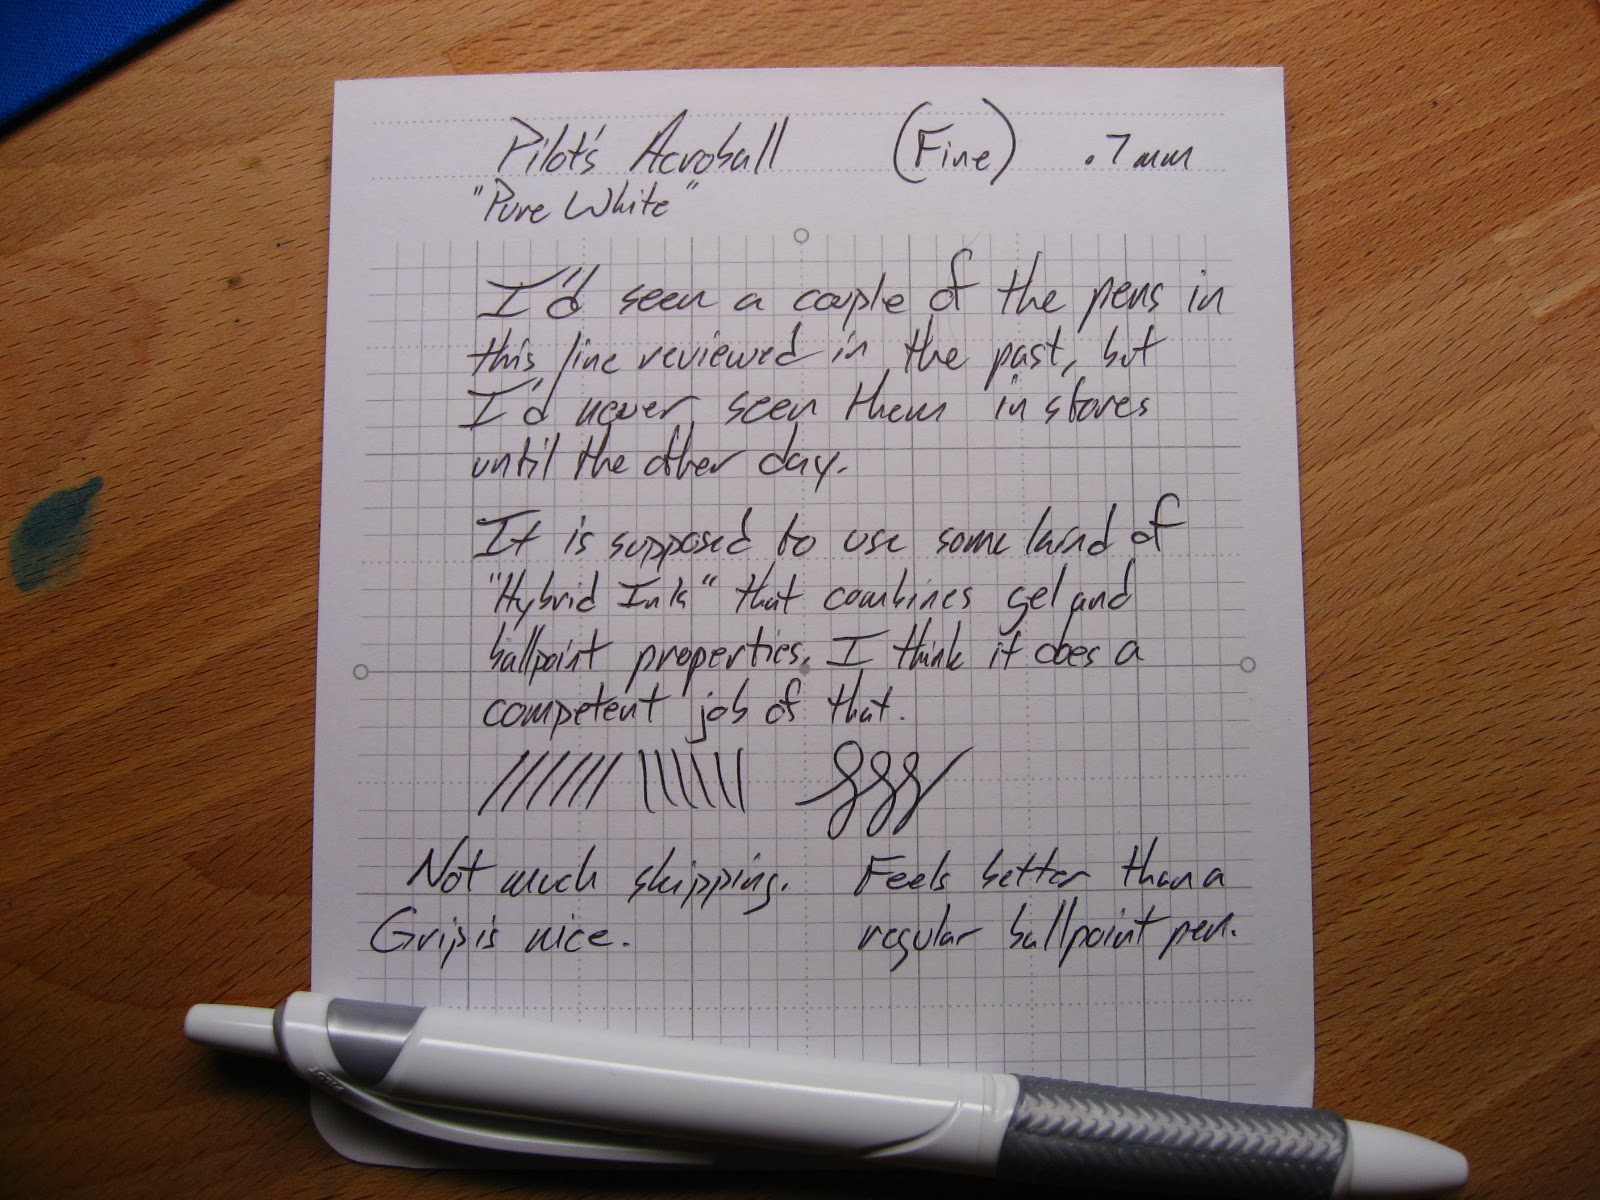 Pilot's Acroball (Fine) .7mm
"Pure White"
I'd seen a couple of the pens in
this line reviewed in the past, but
I'd never seen them in stores
until the other day.
It is supposed to use some kind of
"Hybrid Ink" that combines gel and
ballpoint properties. I think it does a
competent job of that.
Not much skipping. Feels better than a
Grip is nice. regular ballpoint pen.
PILOT